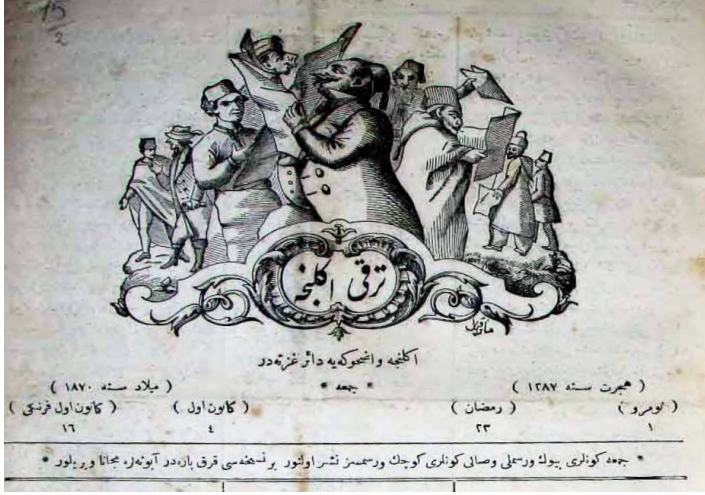 ١٥
٢
ترقی
اكلنجه
اكلنجه واضحوكه‌يه دائر غزته‌در
( هجرت سنه ١٢٨٧ ) * جمعه * ( ميلاد سنه ١٨٧٠ )
( نومرو ) ( رمضان ) ( كانون اول ) ( كانون اول فرنكی )
١ ٢٣ ٤ ١٦
* جمعه كونلری بيوك ورسملی وصالی كونلری كوچك ورسمسز نشر اولنور برنسخه‌سی قرق پاره‌در آبونه‌لره مجانا ويريلور *